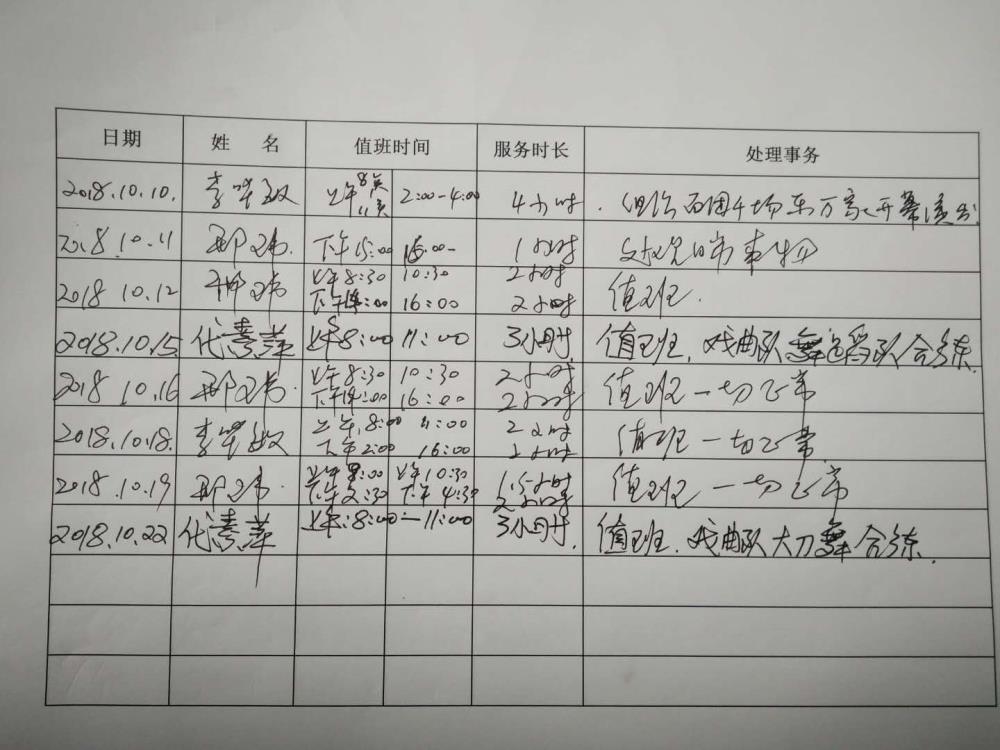 日期 姓 名 值班时间 服务时长 处理事务
2018.10.10. 李 敏 上午8点 11点 2:00-4:00 4小时
2018 10.11 邢玮 下午15:00 16:00- 1小时
2018 10.12 邢玮 上午8:30 10:30 2小时 值班.
下午14:00 16:00 2小时
2018.10.15 代素萍 上午8:00 11:00 3小时. 值班.戏曲队舞蹈队合练.
2018 10.16 邢玮. 上午8:30 10:30 2小时 值班一切正常
下午14:00 16:00 2小时
2018.10.18. 李 敏 上午.8:00 2小时 值班一切正常
下午2:00 16:00 2小时
2018.10.19 邢玮. 上午 上午10:30 1.5小时 值班一切正常
下午2:30 下午4:30 2小时
2018.10.22 代素萍 上午:8:00—11:00 3小时. 值班.戏曲队大刀舞合练.